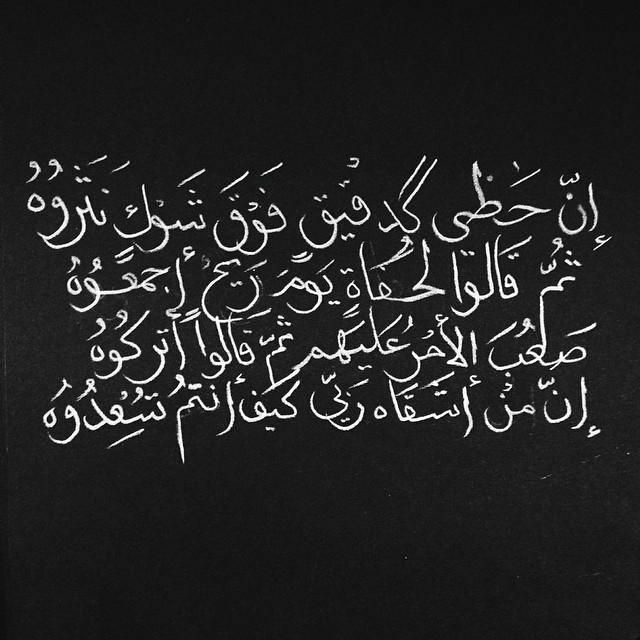 إنّ حَظي گدقيق فَوْقَ شَوْك نَثَروُهُ
ثُمّ قَالوا لحُفَاةٍ يَومَ رَيحُ أجمعَوُهُ
صَعُبَ الأمْرُ عَلَيَهم ثمّ قَالواً أتركوُهُ
إنّ مَنْ أشَقَاه رَبيّ كيَف أنتمُ تسُعِدُوُه